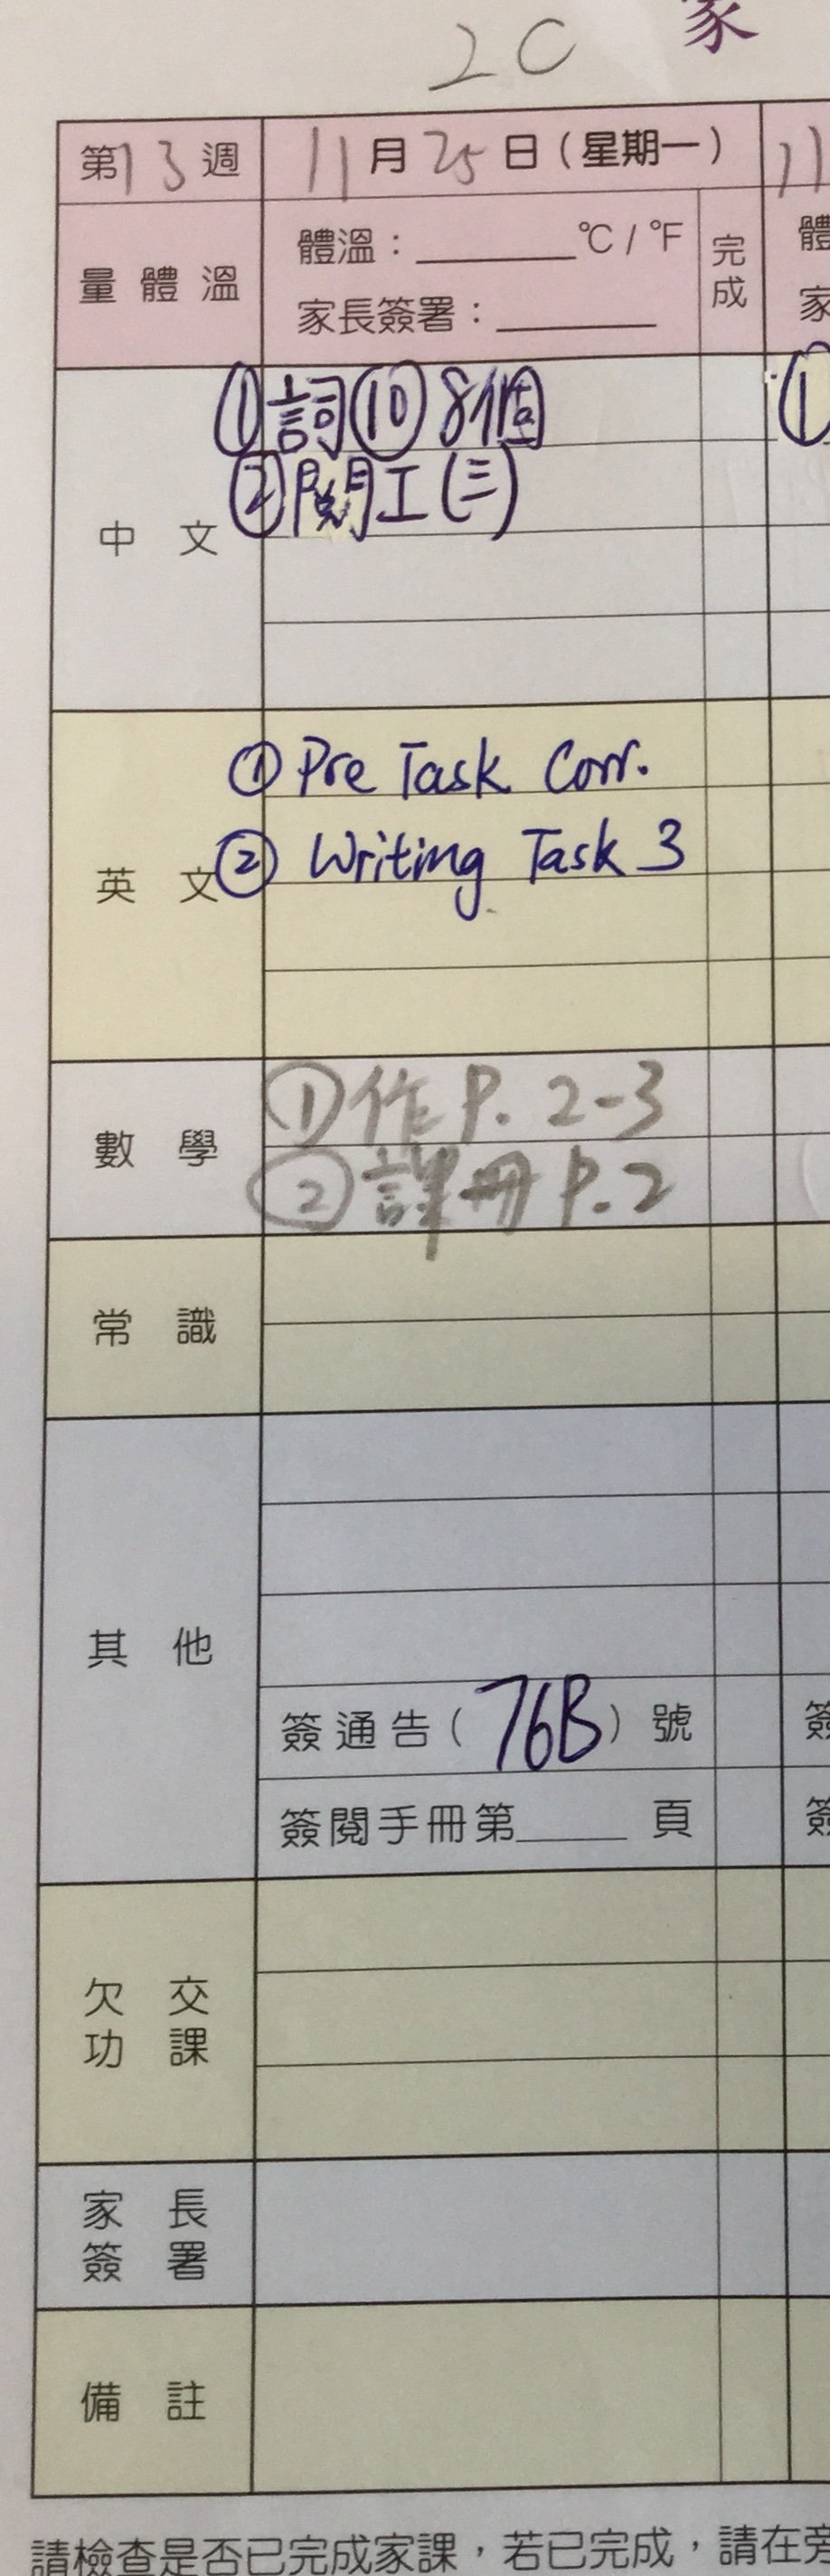 2C 家
第13週 11月25日(星期一) 11
量體溫 體溫:______°C / °F 完成 體
家長簽署:______ 家
中文 ①詞⑩8個 ①
②閱工(三)
英文 ①Pre Task Corr.
② Writing Task 3
數學 ①作P. 2-3
②課冊P.2
常識
其他
簽通告(76B)號 簽
簽閱手冊第____頁 簽
欠交
功課
家長
簽署
備註
請檢查是否已完成家課,若已完成,請在旁